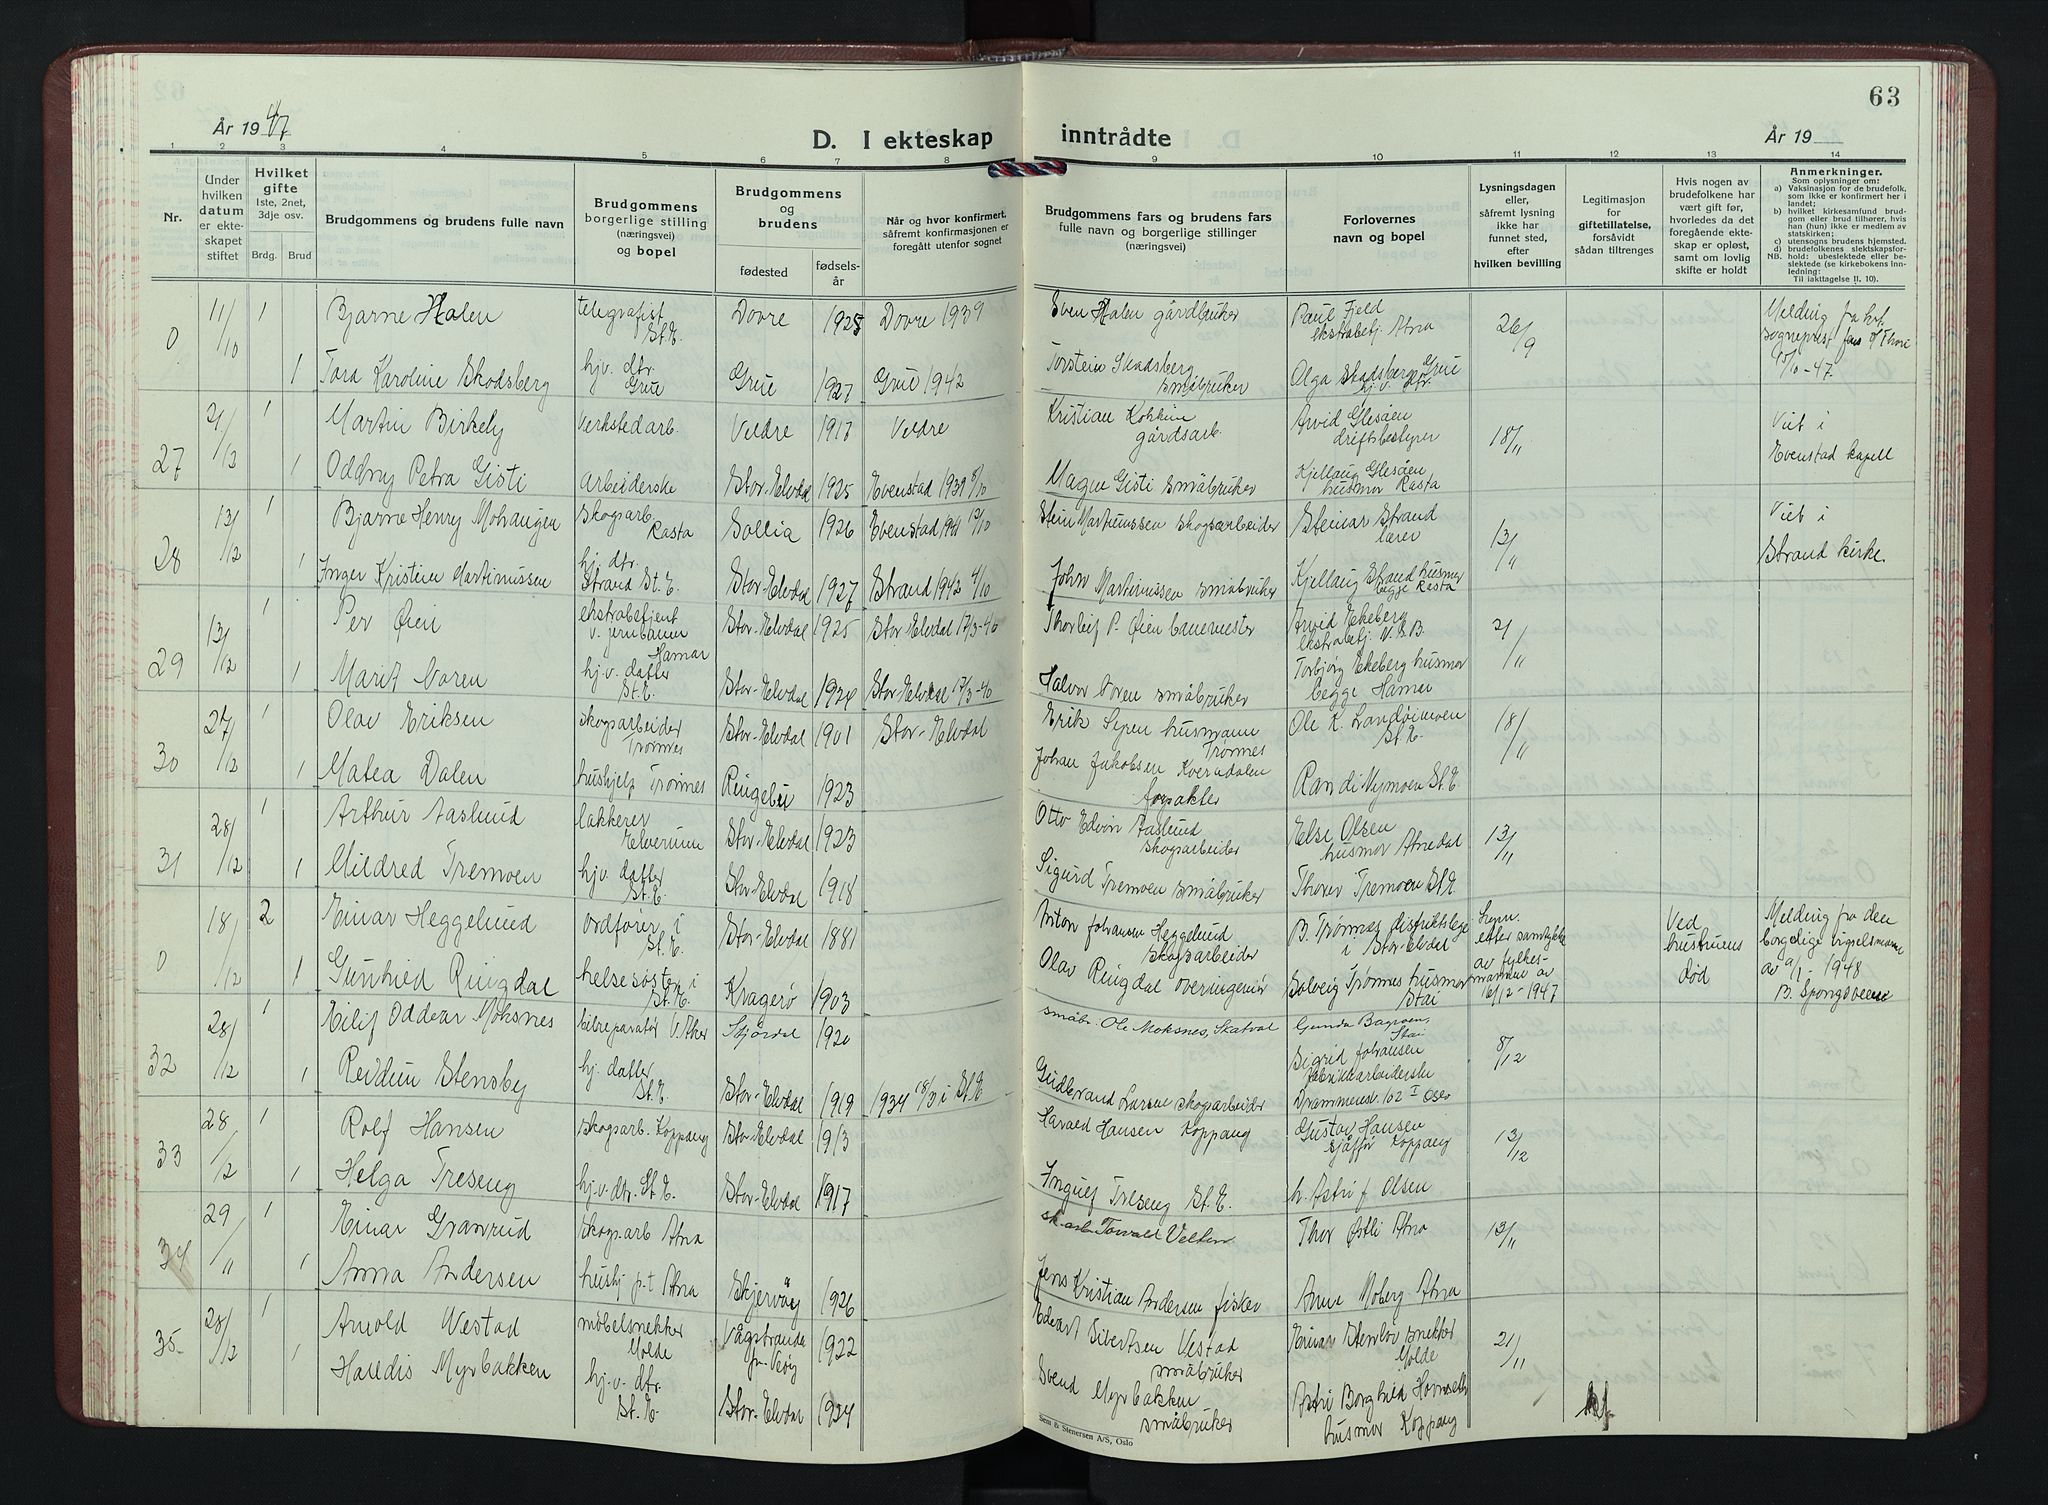 63
År 1947
D. I ekteskap inntrådte
År 19
1 2 3 4 5 6 7 8 9 10 11 12 13 14
Nr.
Under hvilken datum er ekteskapet stiftet
Hvilket gifte 1ste, 2net, 3dje osv.
Brdg. Brud
Brudgommens og brudens fulle navn
Brudgommens borgerlige stilling (næringsvei) og bopel
Brudgommens og brudens
fødested
fødselsår
Når og hvor konfirmert, såfremt konfirmasjonen er foregått utenfor sognet
Brudgommens fars og brudens fars fulle navn og borgerlige stillinger (næringsvei)
Forlovernes navn og bopel
Lysningsdagen eller, såfremt lysning ikke har funnet sted, efter hvilken bevilling
Legitimasjon for giftetillatelse, forsåvidt sådan tiltrenges
Hvis nogen av brudefolkene har vært gift før, hvorledes da det foregående ekteskap er opløst, samt om lovlig skifte er holdt
Anmerkninger.
Som oplysninger om:
a) Vaksinasjon for de brudefolk, som ikke er konfirmert her i landet;
b) hvilket kirkesamfund brudgom eller brud tilhører, hvis han (hun) ikke er medlem av statskirken;
c) utensogns brudens hjemsted.
d) brudefolkenes slektskapsforhold: ubeslektede eller beslektede (se kirkebokens innledning:
NB.
Til iakttagelse II. 10).
0 11/10 1 Bjarne Halen telegrafist St.E. Dovre 1925 Dovre 1939 Sven Halen gårdbruker Paul Fjeld ekstrabetj. Atna 26/9 Melding fra sogneprest 47.
1 Tora Karoline Skodsberg hjv. dtr. Grue Grue 1927 Grue 1942 Torstein Skadsberg småbruker Olga Skadsberg Grue hj.v. dtr.
27 1 Martin Birkely verkstedarb. Veldre 1917 Veldre Kristian gårdsarb. Arvid Glesåen driftsbestyrer 18/11 Viet i Evenstad kapell
1 Oddny Petra Gisti arbeiderske Stor-Elvdal 1925 Evenstad 1939 Magne Gisti småbruker Kjellaug Glesåen husmor Rasta
28 13/12 1 Bjarne Henry Mohaugen skogsarb. Rasta Sollia 1926 Evenstad 1941 Stein Martinussen skogsarbeider Steinar Strand lærer 13/11 Viet i Strand kirke.
1 Inger Kristine Martinussen hj. dtr. Strand St.E. Stor-Elvdal 1927 Strand 1942 4/10 John Martinussen småbruker Kjellaug Strand husmor begge Rasta
29 13/12 1 Per Øien ekstrabetjent v. jernbanen Hamar Stor-Elvdal 1925 Stor-Elvdal 17/3-40 Thorleif P. Øien banemester Arvid Ekeberg ekstrabetj. N.S.B. 21/11
1 Marit Voren hj.v. datter St.E. Stor-Elvdal Stor-Elvdal 17/3-40 Halvor Voren småbruker Torbjørg Ekeberg husmor begge Hamar
30 27/12 1 Olav Eriksen skogsarbeider Trønnes Stor-Elvdal 1901 Stor-Elvdal Erik husmann Trønnes Ole K. Landsimoen St.E. 18/11
1 Matea Dalen hushjelp Trønnes Ringebu 1923 Johan Jakobsen Kverndalen forpakter Randi Nymoen St.E.
31 28/12 1 Arthur Aaslund lakkerer Elverum Stor-Elvdal 1923 Otto Edvin Aaslund skogsarbeider Else Olsen husmor Atnedal 13/11
1 Mildred Tremoen hj.v. datter St.E. Stor-Elvdal 1918 Sigurd Tremoen småbruker Thorer Tremoen St.E.
0 18/12 2 Einar Heggelund ordfører i St.E. Stor-Elvdal 1881 Anton Johansen Heggelund skogsarbeider B. Trønnes distriktslege i Stor-Elvdal etter samtykke av fylkesmannen av 16/12-1947 Ved hustruens død Melding fra den borgelige vigselsmann av 9/1-1948 B. Spongsveen
1 Gunhild Ringdal helsesøster i St.E. Kragerø 1903 Olav Ringdal overingeniør Solveig Trønnes husmor Stai
32 28/12 1 Eilif Oddvar Moksnes bilreparatør V. Aker Stjørdal 1920 småbr. Ole Moksnes, Skatval Gunda Stai 8/12
1 Reidun Stensby hj. datter St.E. Stor-Elvdal 1919 1934 18/ i St.E. Gudbrand Larsen skogsarbeider Sigrid Johansen fabrikkarbeiderske Drammensv. 102 I Oslo
33 28/12 1 Rolf Hansen skogsarb. Koppang Stor-Elvdal 1913 Harald Hansen Koppang Gustav Hansen sjåfør Koppang 13/12
1 Helga Treseng hj.v. dtr. St.E. Stor-Elvdal 1917 Ingulf Treseng St.E. h. Astri J. Olsen
34 29/11 1 Einar Granrud skogsarb Atna sk.arb. Torvald Velten Thor Østli Atna 13/11
1 Anna Andersen hushj p.t Atna Skjervøy 1926 Jens Kristian Andersen fisker Anne Moberg Atna
35 28/12 1 Arnold Vestad møbelsnekker Molde Vågstranda pr. Veøy 1922 Edvart Sivertsen Vestad småbruker Einar Stenløs snekker Molde 21/11
1 Halldis Myrbakken hj.v. dtr. St.E. Stor-Elvdal 1924 Svend Myrbakken småbruker Astri Borghild husmor Koppang
Sem & Stenersen A/S, Oslo